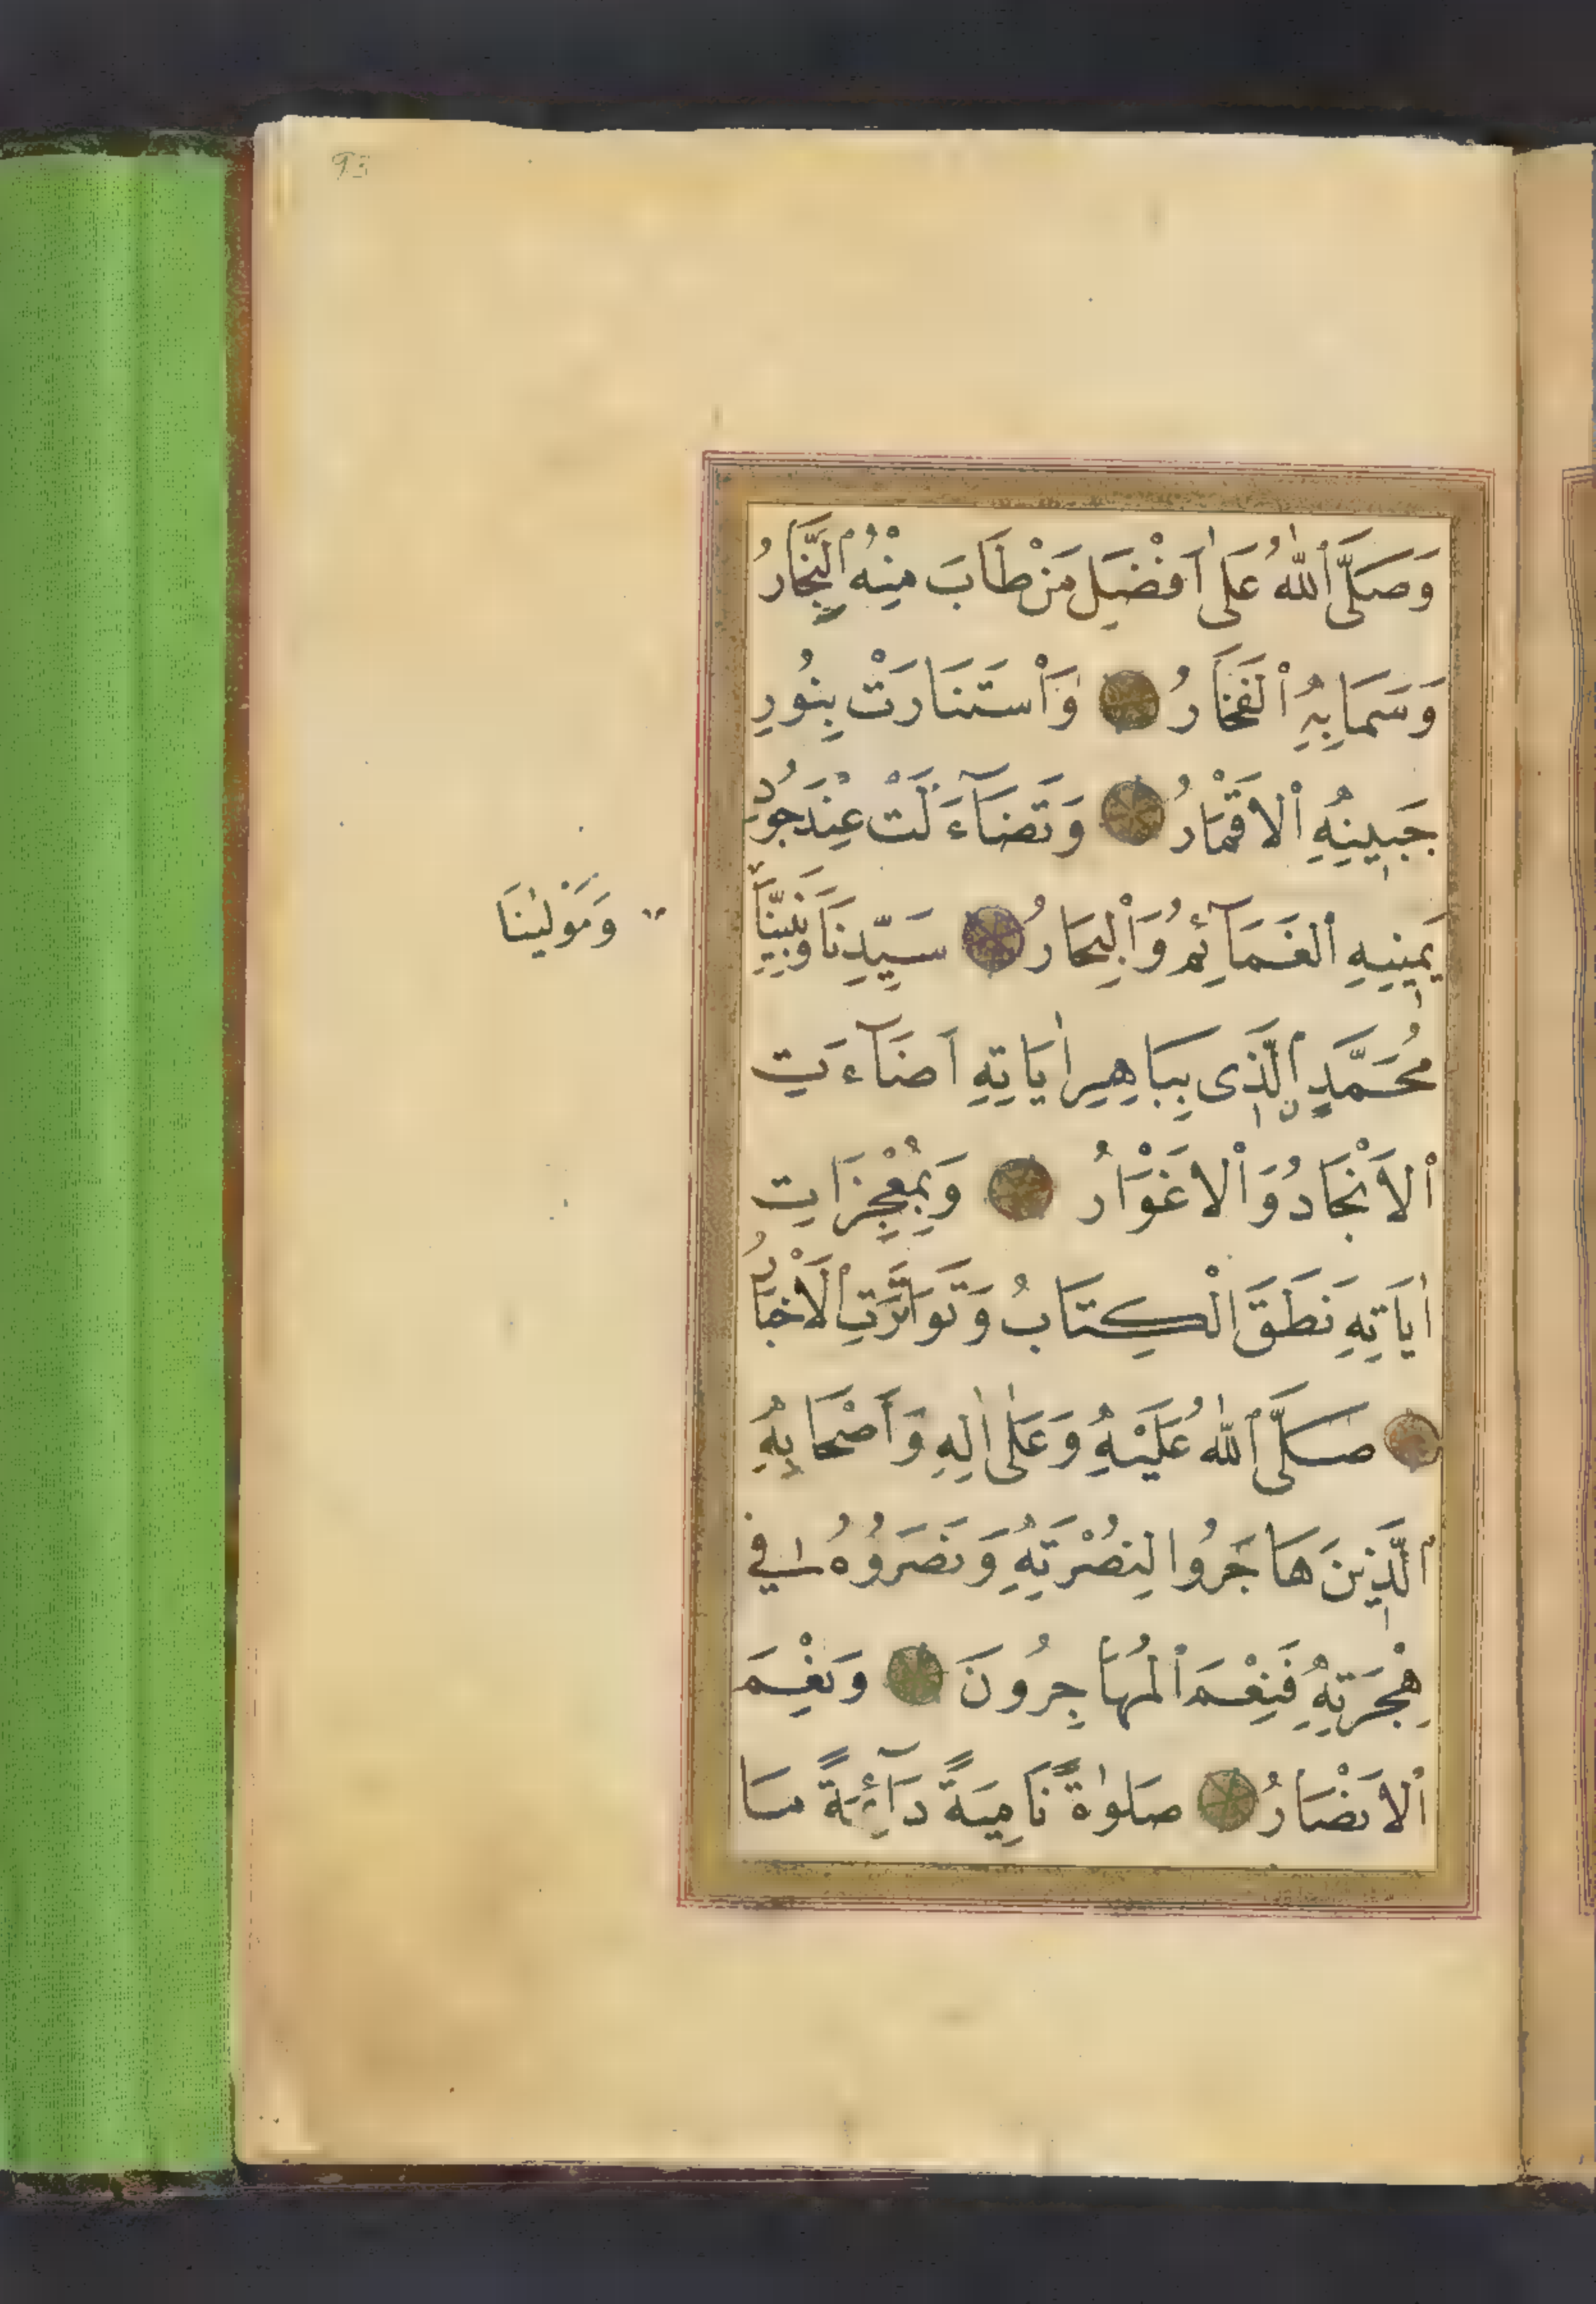 93
وَصَلَّى ٱللّٰهُ عَلٰى اَفْضَلِ مَنْ طَابَ مِنْهُ ٱلنِّجَارُ
وَسَمَا بِهِ ٱلْفَخَارُ وَٱسْتَنَارَتْ بِنُورِ
جَبِينِهِ ٱلْاَقْمَارُ وَتَضَآءَلَتْ عِنْدَ جُودِ
يَمِينِهِ ٱلْغَمَآئِمُ وَٱلْبِحَارُ سَيِّدِنَا وَنَبِيِّنَا
وَمَوْلٰينَا
مُحَمَّدٍ ٱلَّذِى بِبَاهِرِ اٰيَاتِهِ اَضَآءَتِ
ٱلْاَنْجَادُ وَٱلْاَغْوَارُ وَبِمُعْجِزَاتِ
اٰيَاتِهِ نَطَقَ ٱلْكِتَابُ وَتَوَاتَرَتِ ٱلْاَخْبَارُ
صَلَّى ٱللّٰهُ عَلَيْهِ وَعَلٰى اٰلِهِ وَاَصْحَابِهِ
ٱلَّذِينَ هَاجَرُوا لِنُصْرَتِهِ وَنَصَرُوهُ فِي
هِجْرَتِهِ فَنِعْمَ ٱلْمُهَاجِرُونَ وَنِعْمَ
ٱلْاَنْصَارُ صَلٰوةً نَامِيَةً دَآئِمَةً مَا